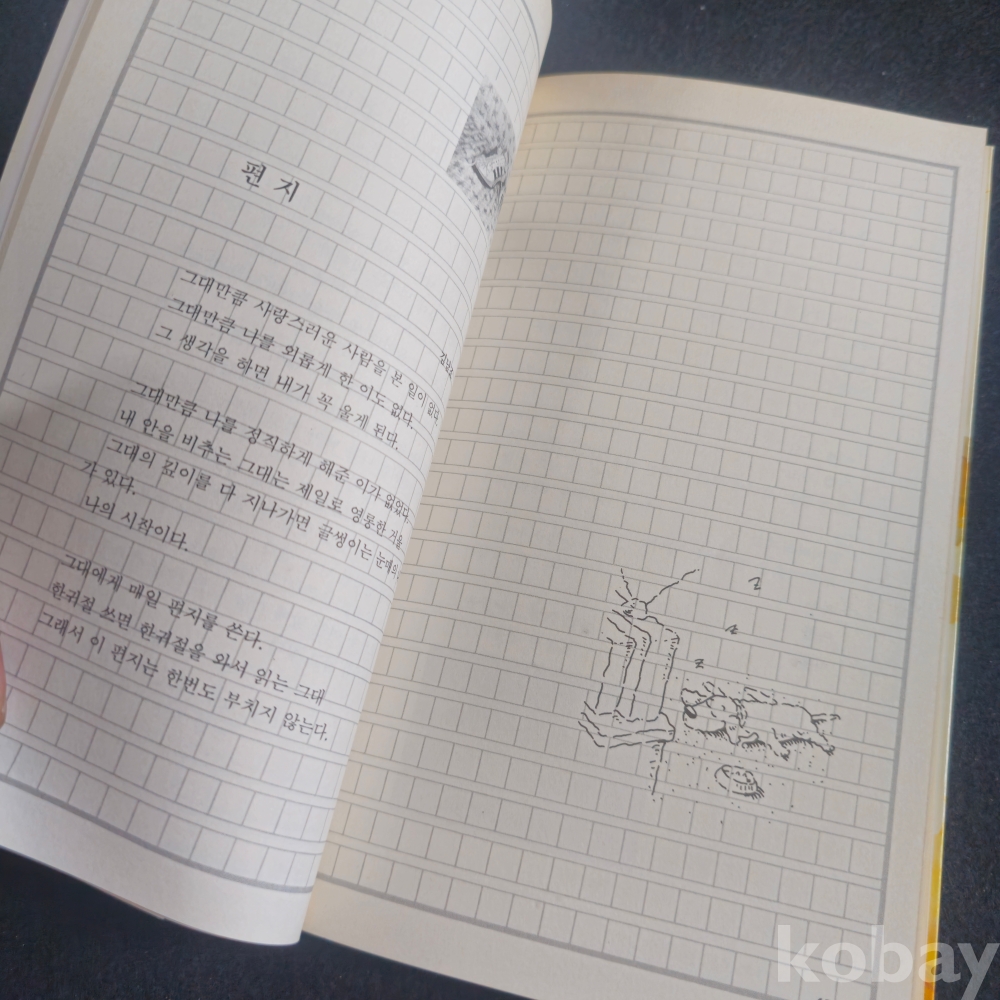 편 지
그대만큼 사랑스러운 사람을 본 일이 없다.
그대만큼 나를 외롭게 한 이도 없다.
그 생각을 하면 내가 꼭 울게 된다.
그대만큼 나를 정직하게 해준 이가 없었다.
내 안을 비추는 그대는 제일로 영롱한 거울
그대의 깊이를 다 지나가면 글썽이는 눈매의
가 있다.
나의 시작이다.
그대에게 매일 편지를 쓴다.
한귀절 쓰면 한귀절을 와서 읽는 그대
그래서 이 편지는 한번도 부치지 않는다.
z
z
z
kobay